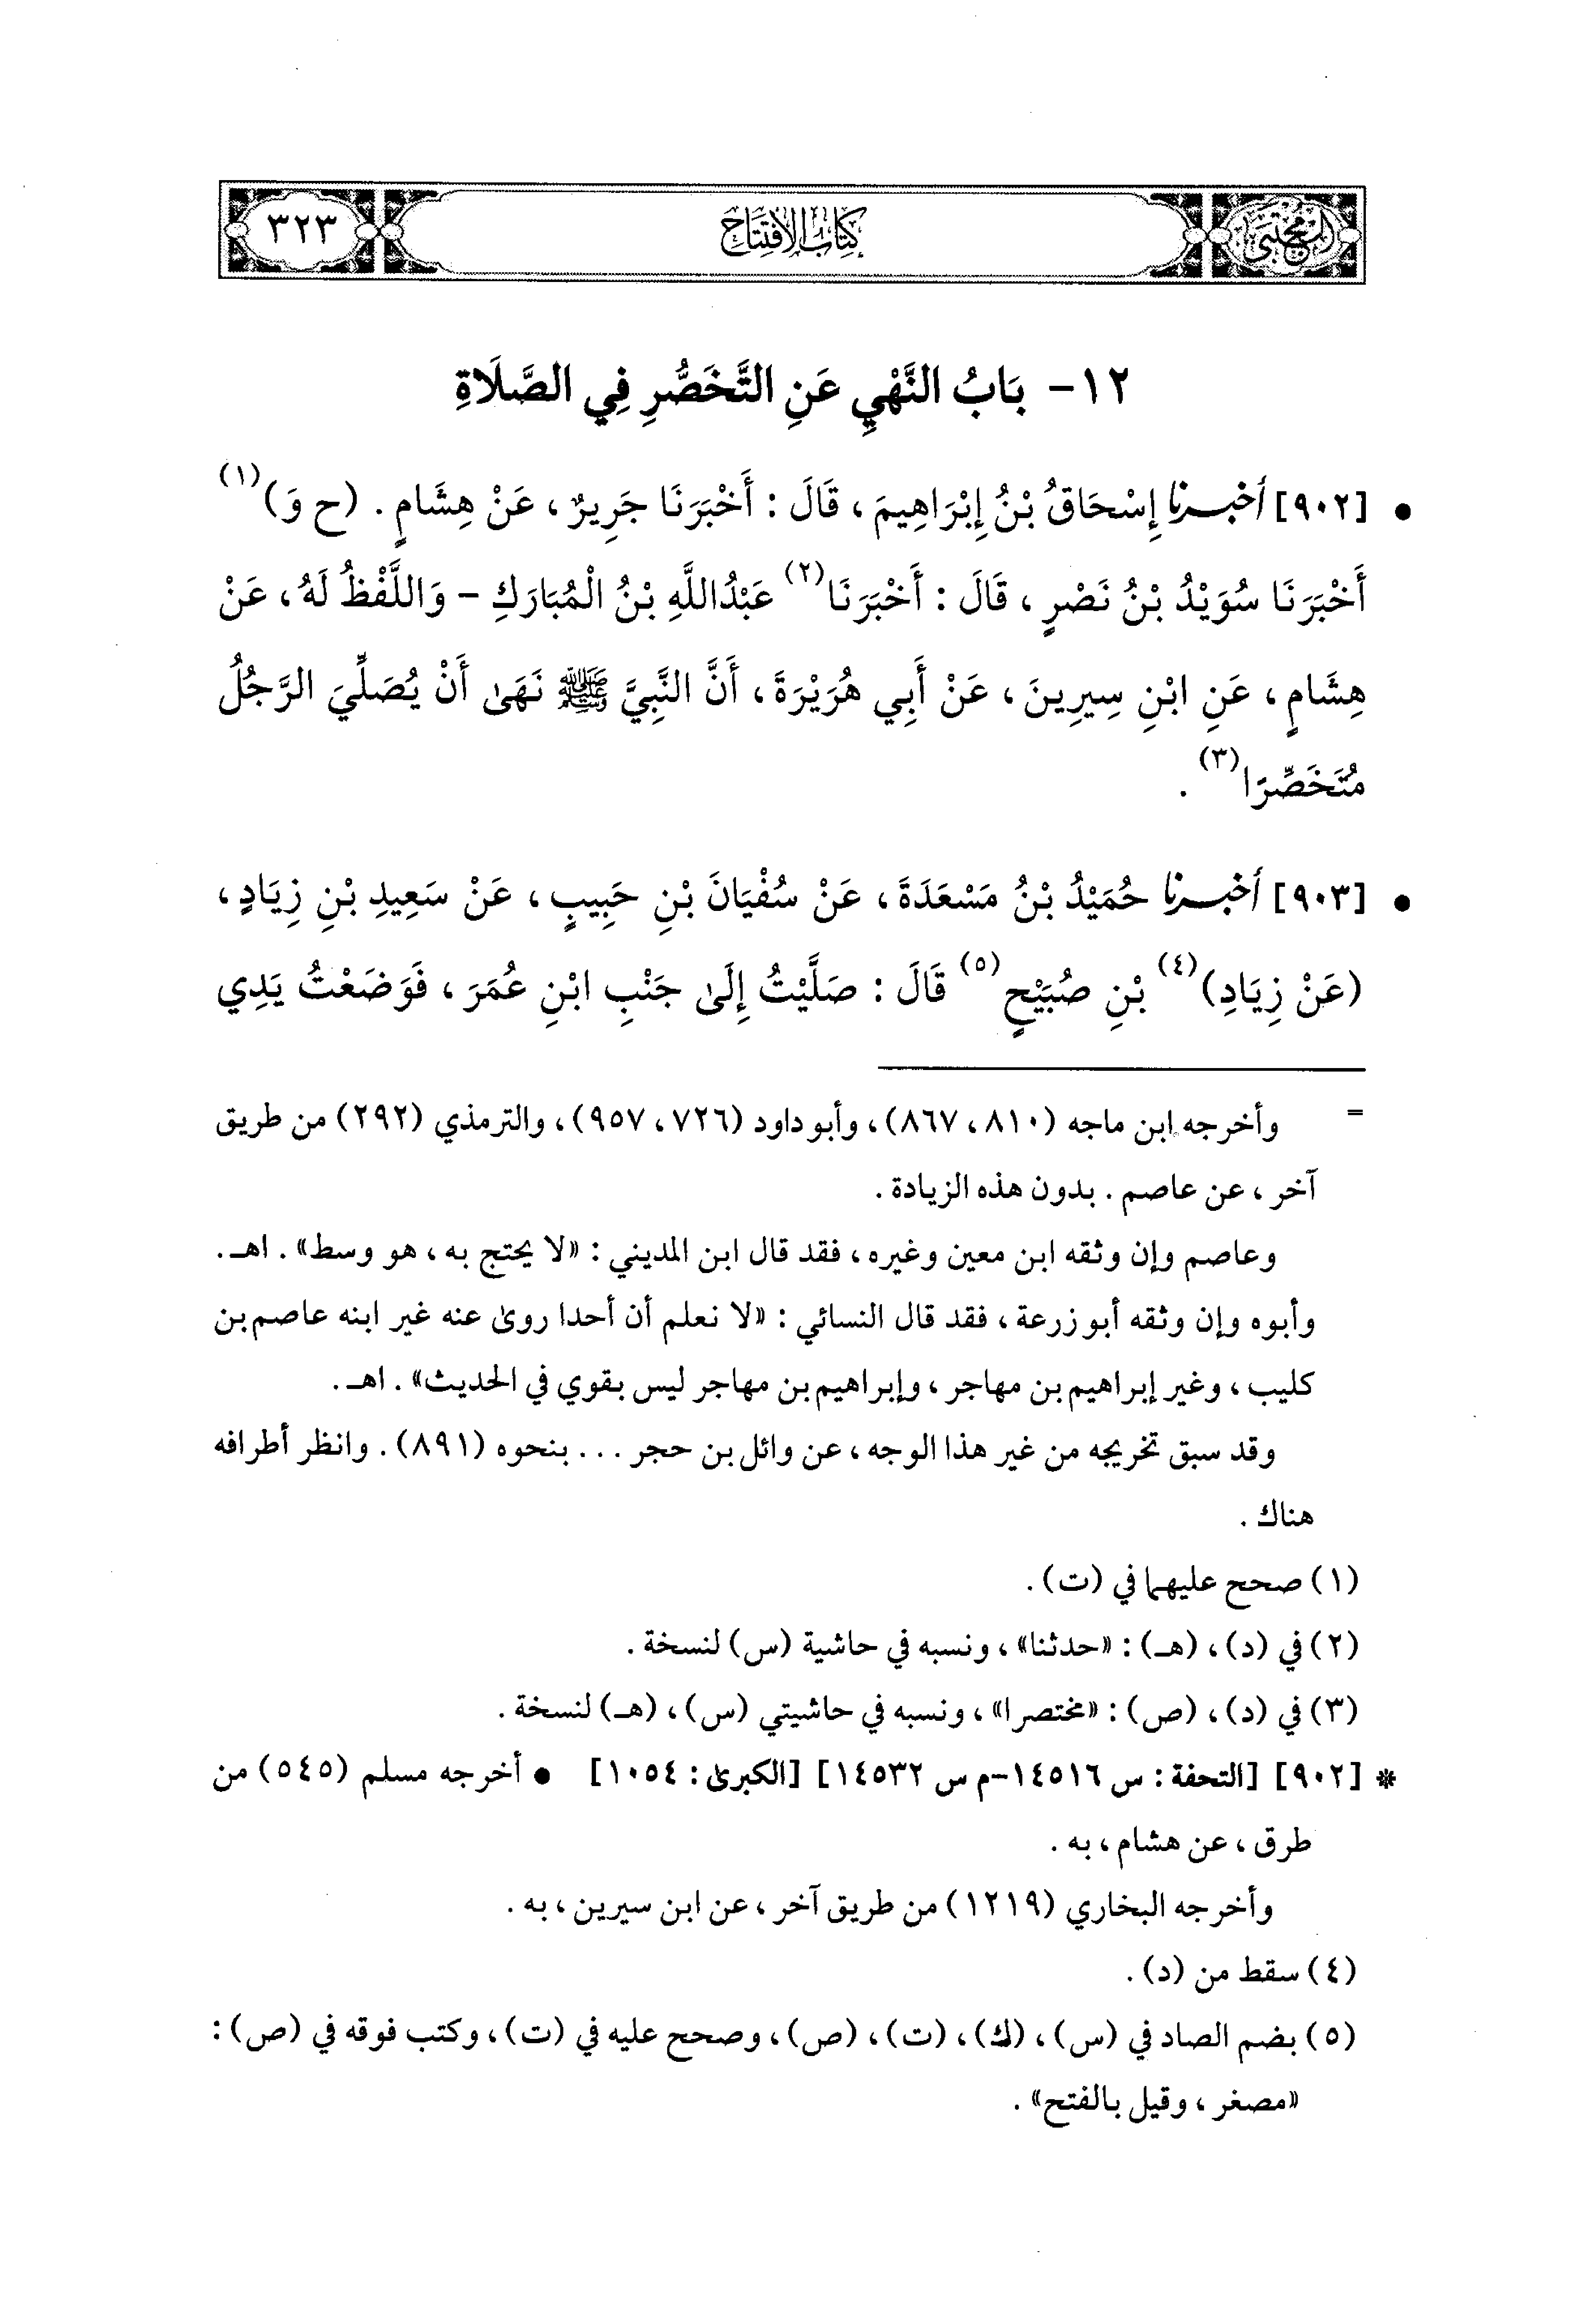 المجتبى
كتاب الافتتاح
٣٢٣
١٢- بَابُ النَّهْيِ عَنِ التَّخَصُّرِ فِي الصَّلَاةِ
• [٩٠٢] أخبرنا إِسْحَاقُ بْنُ إِبْرَاهِيمَ، قَالَ: أَخْبَرَنَا جَرِيرٌ، عَنْ هِشَامٍ. (ح وَ)(١)
أَخْبَرَنَا سُوَيْدُ بْنُ نَصْرٍ، قَالَ: أَخْبَرَنَا(٢) عَبْدُاللَّهِ بْنُ الْمُبَارَكِ - وَاللَّفْظُ لَهُ، عَنْ
هِشَامٍ، عَنِ ابْنِ سِيرِينَ، عَنْ أَبِي هُرَيْرَةَ، أَنَّ النَّبِيَّ ﷺ نَهَى أَنْ يُصَلِّيَ الرَّجُلُ
مُتَخَصِّرًا(٣).
• [٩٠٣] أخبرنا حُمَيْدُ بْنُ مَسْعَدَةَ، عَنْ سُفْيَانَ بْنِ حَبِيبٍ، عَنْ سَعِيدِ بْنِ زِيَادٍ،
(عَنْ زِيَادِ)(٤) بْنِ صُبَيْحٍ(٥) قَالَ: صَلَّيْتُ إِلَى جَنْبِ ابْنِ عُمَرَ، فَوَضَعْتُ يَدِي
= وأخرجه ابن ماجه (٨١٠، ٨٦٧)، وأبو داود (٧٢٦، ٩٥٧)، والترمذي (٢٩٢) من طريق
آخر، عن عاصم. بدون هذه الزيادة.
وعاصم وإن وثقه ابن معين وغيره، فقد قال ابن المديني: «لا يحتج به، هو وسط». اهـ.
وأبوه وإن وثقه أبو زرعة، فقد قال النسائي: «لا نعلم أن أحدا روى عنه غير ابنه عاصم بن
كليب، وغير إبراهيم بن مهاجر، وإبراهيم بن مهاجر ليس بقوي في الحديث». اهـ.
وقد سبق تخريجه من غير هذا الوجه، عن وائل بن حجر ... بنحوه (٨٩١). وانظر أطرافه
هناك.
(١) صحح عليهما في (ت).
(٢) في (د)، (هـ): «حدثنا»، ونسبه في حاشية (س) لنسخة.
(٣) في (د)، (ص): «مختصرا»، ونسبه في حاشيتي (س)، (هـ) لنسخة.
* [٩٠٢] [التحفة: س ١٤٥١٦-م س ١٤٥٣٢] [الكبرى: ١٠٥٤] • أخرجه مسلم (٥٤٥) من
طرق، عن هشام، به.
وأخرجه البخاري (١٢١٩) من طريق آخر، عن ابن سيرين، به.
(٤) سقط من (د).
(٥) بضم الصاد في (س)، (ك)، (ت)، (ص)، وصحح عليه في (ت)، وكتب فوقه في (ص):
«مصغر، وقيل بالفتح».